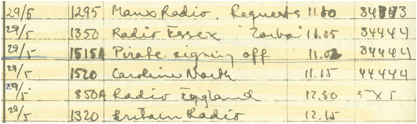 29/5 1295 Manx Radio. Requests 11.00 34443
29/5 1350 Radio Essex "Zorba" 11.05 34444
29/5 1515A Pirate signing off 11.02 34444
29/5 1520 Caroline North 11.15 44444
29/5 850A Radio England 12.30 5 x 5
29/5 1320 Britain Radio 12.15